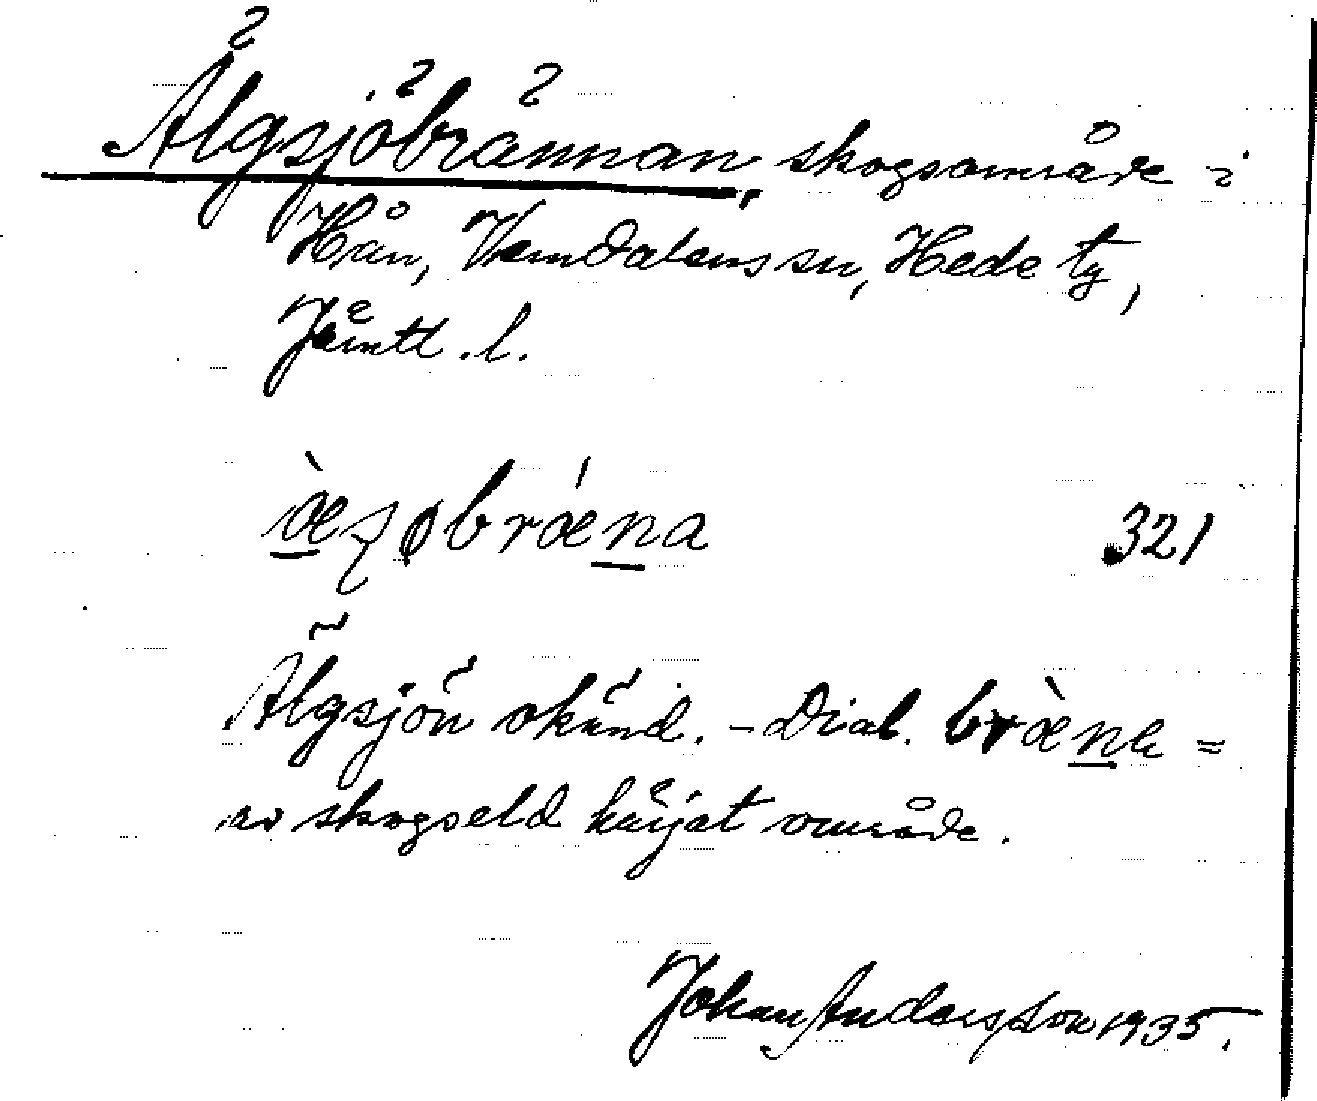 Älgsjöbrännan, skogsområde i
Hån, Vemdalens sn, Hede tg,
Jämtl. l.
321
Älgsjön okänd. – Dial. bræ̀na =
av skogseld härjat område.
Johan Andersson 1935.